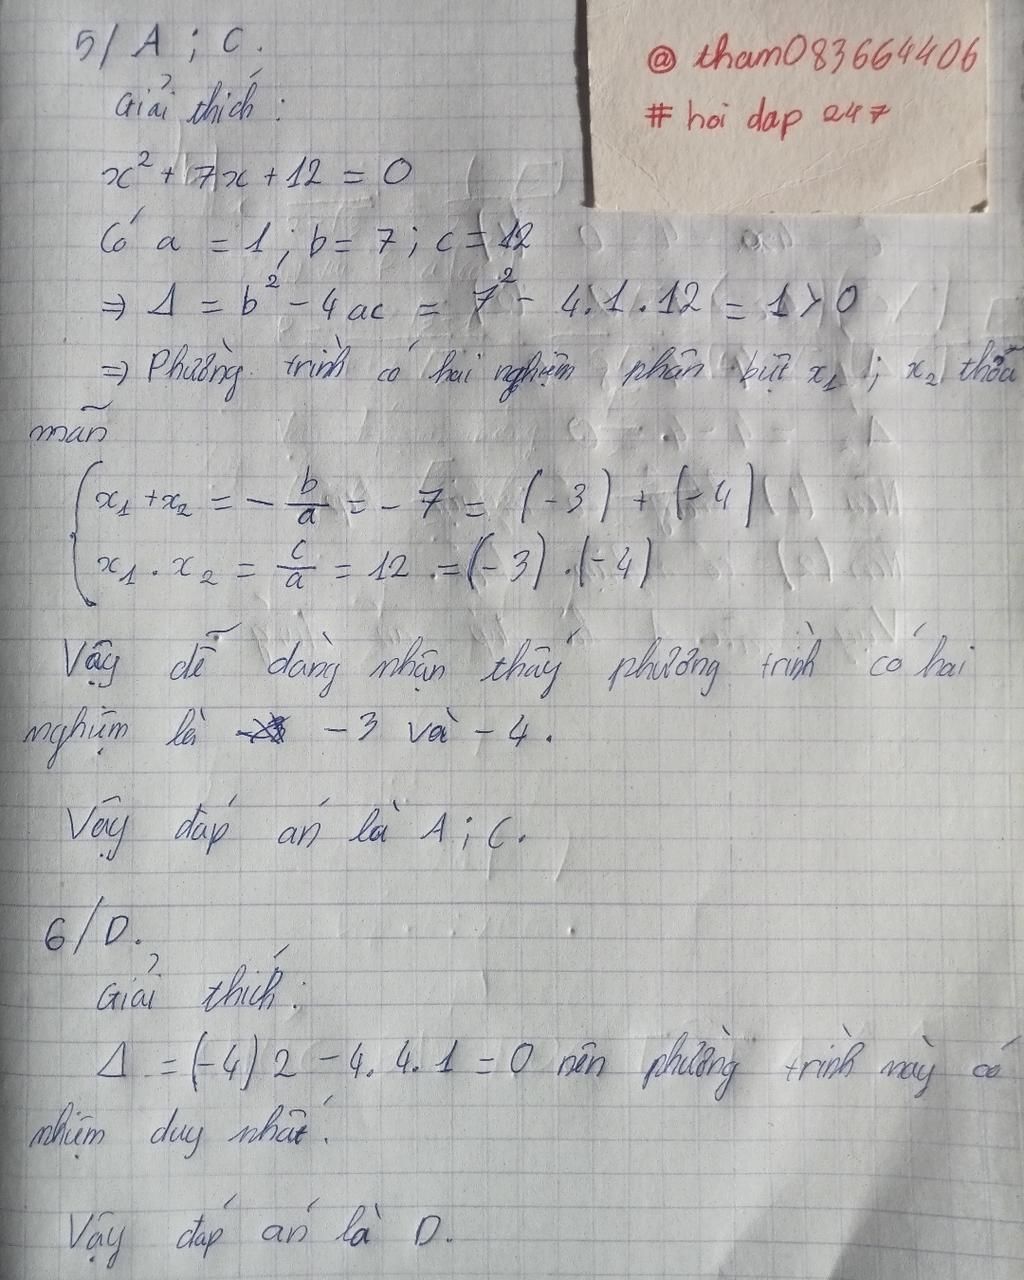 5/ A ; C.
@ tham083664406
# hoi dap 247
Giải thích :
x² + 7x + 12 = 0
Có a = 1 ; b = 7 ; c = 12
⇒ Δ = b² - 4ac = 7² - 4.1.12 = 1 > 0
⇒ Phường trình có hai nghiệm phân biệt x₁ ; x₂ thỏa
mãn
{ x₁ + x₂ = - b/a = - 7 = (-3) + (-4)
x₁ . x₂ = c/a = 12 = (-3) . (-4)
Vậy dễ dàng nhận thấy phương trình có hai
nghiệm là -3 và -4.
Vậy đáp án là A ; C.
6/ D.
Giải thích :
Δ = (-4) 2 - 4. 4. 1 = 0 nên phường trình này có
nhiệm duy nhất.
Vậy đáp án là D.